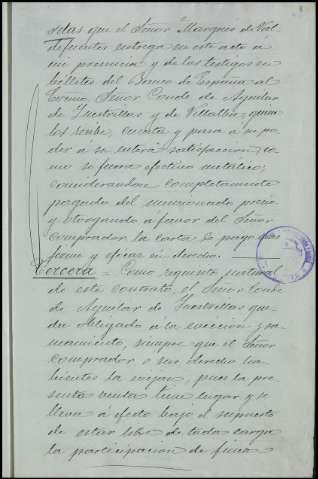 setas que el Señor Marques de Val-
defuentes entrega en este acto á
mi presencia y de los testigos en
billetes del Banco de España al
Excmo. Señor Conde de Aguilar
de Inestrillas y de Villalba, quien
los recibe, cuenta y pasa á su po-
der á su entera satisfaccion co
mo si fuera efectivo metálico,
considerandose completamente
pagado del mencionado precio
y otorgando á favor del Señor
comprador la carta de pago mas
firme y eficaz en derecho.
Tercera = Como requisito natural
de este contrato el Señor Conde
de Aguilar de Inestrillas que-
da obligado á la eviccion y sa-
neamiento, siempre que el Señor
comprador o sus derecho ha-
bientes la exijan, pues la pre-
sente venta tiene lugar y se
lleva á efecto bajo el supuesto
de estar libre de toda carga
la participacion de finca